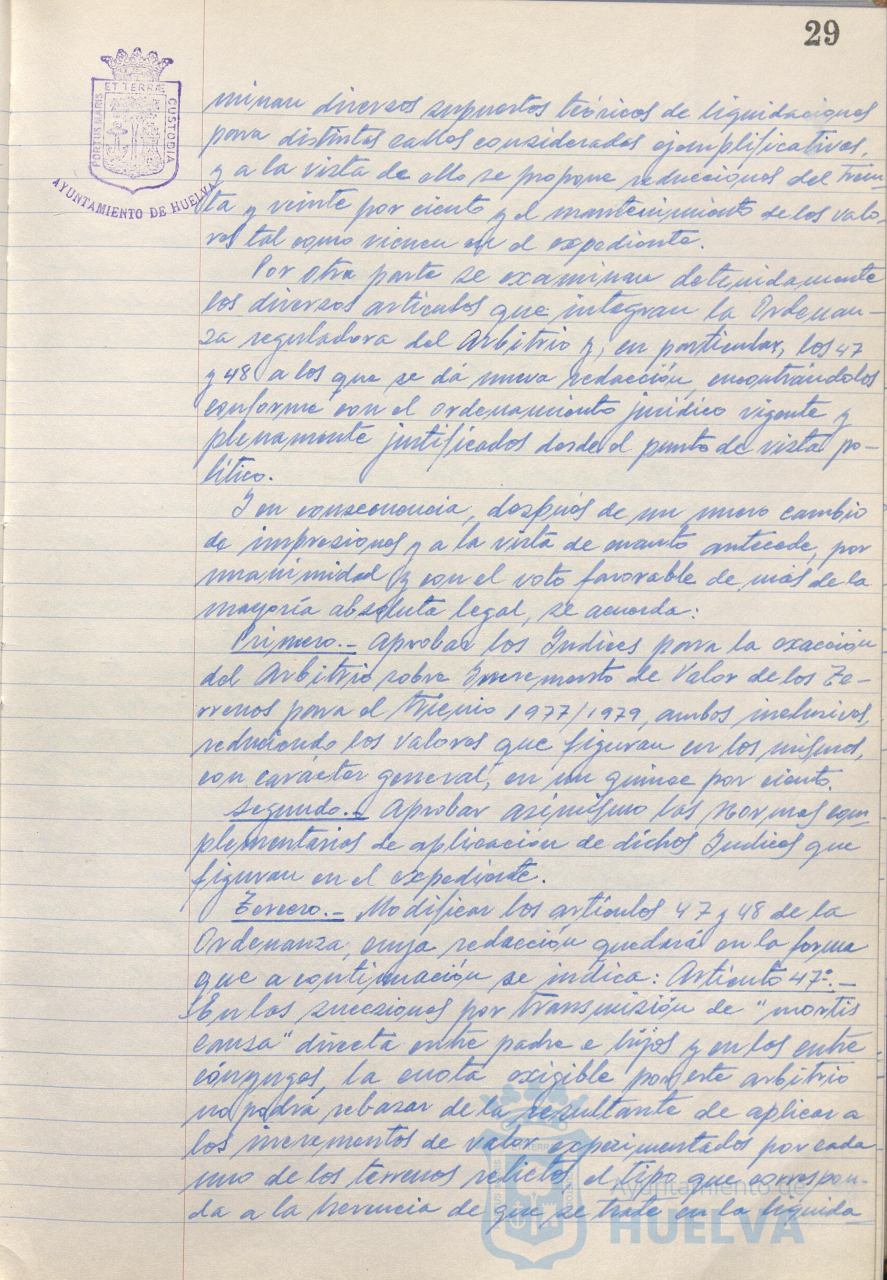 29
PORTUS MARIS ET TERRÆ CUSTODIA
AYUNTAMIENTO DE HUELVA
minan diversos supuestos teóricos de liquidaciones
para distintas calles consideradas ejemplificativas,
y a la vista de ello se propone reducciones del trein-
ta y veinte por ciento y el mantenimiento de los valo-
res tal como vienen en el expediente.
Por otra parte se examinan detenidamente
los diversos artículos que integran la Ordenan-
za reguladora del Arbitrio y, en particular, los 47
y 48 a los que se dá nueva redacción, encontrándolos
conforme con el ordenamiento jurídico vigente y
plenamente justificados desde el punto de vista po-
lítico.
Y en consecuencia, después de un nuevo cambio
de impresiones y a la vista de cuanto antecede, por
unanimidad y con el voto favorable de más de la
mayoría absoluta legal, se acuerda:
Primero.- Aprobar los Indices para la exacción
del Arbitrio sobre Incremento de Valor de los Te-
rrenos para el trienio 1977/1979, ambos inclusives,
reduciendo los valores que figuran en los mismos,
con carácter general, en un quince por ciento.
Segundo.- Aprobar asimismo las Normas com-
plementarias de aplicación de dichos Indices que
figuran en el expediente.
Tercero.- Modificar los artículos 47 y 48 de la
Ordenanza, cuya redacción quedará en la forma
que a continuación se indica: Artículo 47º.-
"En las sucesiones por transmisión de "mortis
causa" directa entre padre e hijos y en los entre
cónyuges, la cuota exigible por este arbitrio
no podrá rebazar de la resultante de aplicar a
los incrementos de valor experimentados por cada
uno de los terrenos relictos el tipo que correspon-
da a la herencia de que se trate en la liquida
Ayuntamiento de
HUELVA